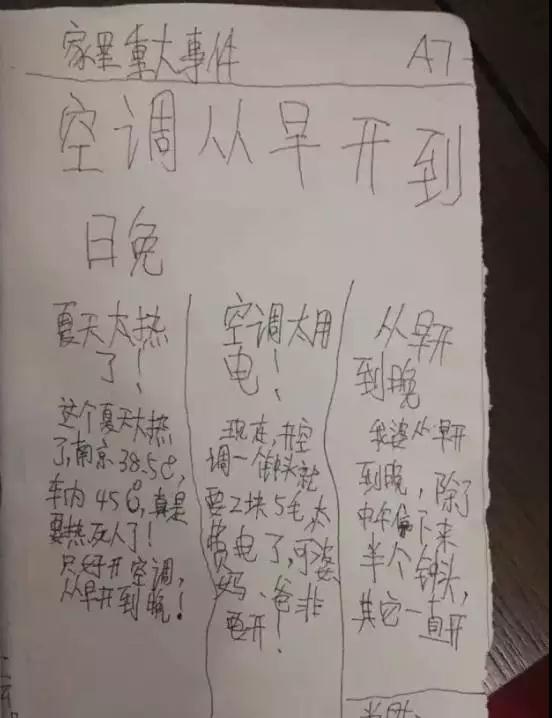 家里重大事件
A7
空调从早开到
日免
夏天太热
了!
这个夏天太热
了,南京38.5℃,
车内45℃,真是
要热死人了!
只好开空调,
从早开到晚!
空调太用
电!
现在,开空
调一个钟头就
要2块5毛,太
费电了,可婆
妈、爸非
要开!
从早开
到晚
我婆从早开
到晚,除了
中午停下来
半个钟头,
其它一直开